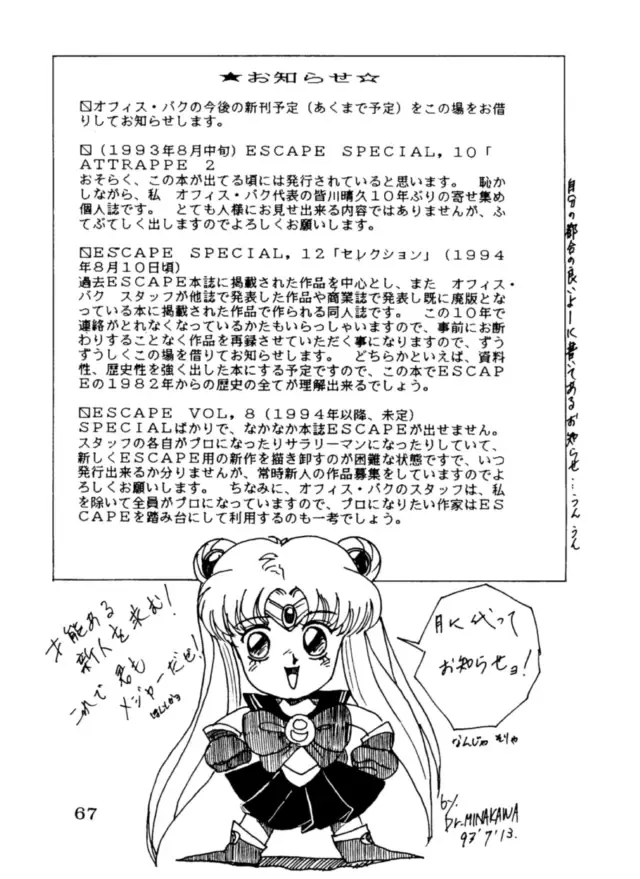 ★お知らせ☆
〼オフィス・バクの今後の新刊予定（あくまで予定）をこの場をお借
りしてお知らせします。
〼（１９９３年８月中旬）ＥＳＣＡＰＥ　ＳＰＥＣＩＡＬ，１０「
ＡＴＴＲＡＰＰＥ　２
おそらく、この本が出てる頃には発行されていると思います。　恥か
しながら、私　オフィス・バク代表の皆川晴久１０年ぶりの寄せ集め
個人誌です。　とても人様にお見せ出来る内容ではありませんが、ふ
てぶてしく出しますのでよろしくお願いします。
〼ＥＳＣＡＰＥ　ＳＰＥＣＩＡＬ，１２「セレクション」（１９９４
年８月１０日頃）
過去ＥＳＣＡＰＥ本誌に掲載された作品を中心とし、また　オフィス・
バク　スタッフが他誌で発表した作品や商業誌で発表し既に廃版とな
っている本に掲載された作品で作られる同人誌です。　この１０年で
連絡がとれなくなっているかたもいらっしゃいますので、事前にお断
わりすることなく作品を再録させていただく事になりますので、ずう
ずうしくこの場を借りてお知らせします。　どちらかといえば、資料
性、歴史性を強く出した本にする予定ですので、この本でＥＳＣＡＰ
Ｅの１９８２年からの歴史の全てが理解出来るでしょう。
〼ＥＳＣＡＰＥ　ＶＯＬ，８（１９９４年以降、未定）
ＳＰＥＣＩＡＬばかりで、なかなか本誌ＥＳＣＡＰＥが出せません。
スタッフの各自がプロになったりサラリーマンになったりしていて、
新しくＥＳＣＡＰＥ用の新作を描き卸すのが困難な状態ですで、いつ
発行出来るか分りませんが、常時新人の作品募集をしていますのでよ
ろしくお願いします。　ちなみに、オフィス・バクのスタッフは、私
を除いて全員がプロになっていますので、プロになりたい作家はＥＳ
ＣＡＰＥを踏み台にして利用するのも一考でしょう。
自分の都合の良いよーに書いてあるお知らせ……うんうん
才能ある
新人を求む！
これで君も
メジャーだぜ！
ほんとかョ
月に代って
お知らせョ！
なんじゃ そりゃ
by.
Dr.MINAKAWA
93'7'13.
67